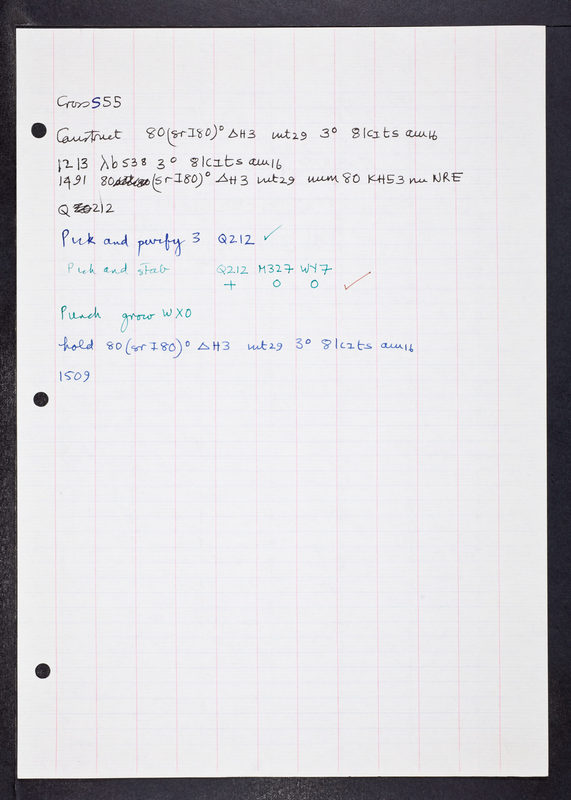 Cross 555
Construct 80(srI80)° ΔH3 int29 3° 8 |cIts am16
1213 λb538 3° 8|cIts am16
1491 80 (srI80)° ΔH3 int29 num80 KH53 nu NRE
Q 212
Pick and purify 3 Q212 ✓
Pick and stab Q212 M327 WY7
+ O O ✓
Punch grow WXO
hold 80(srI80)° ΔH3 int29 3° 8|cIts am16
1509